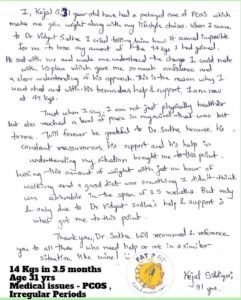 I, Kejal S, 31 year old have had a prolonged case of PCOS which
make me gain weight along with my lifestyle choices. When I came
to Dr Vidyut Sadha I cried telling him how it seemed impossible
for me to lose any amount of the 94 kgs I had gained.
He sat with me and made me understand the change I could make
with his plan which gave me so much confidence and
a clear understanding of his approach. This is the reason why I
went ahead and with his boundless help & support I am now
at 79 kgs.
That when I say, I am not just physically healthier
but also reached a level of peace in my mind that was lost
to me. I will forever be grateful to Dr. Sadha because his
constant reassurances, his support and his help in
understanding my situation brought me to this point.
losing this amount of weight with just an hour of
walking and a good diet was something I didn't think
was achievable in the span of 3.5 months. But only
& only due to Dr Vidyut Sadha's help & support is
what got me to this point.
Thank you, Dr Sadha. Will recommend & reference
you to all those who need help or are in a similar
situation like mine
Kejal
31 yrs.
FAT FIT
14 Kgs in 3.5 months
Age 31 yrs
Medical issues - PCOS ,
Irregular Periods